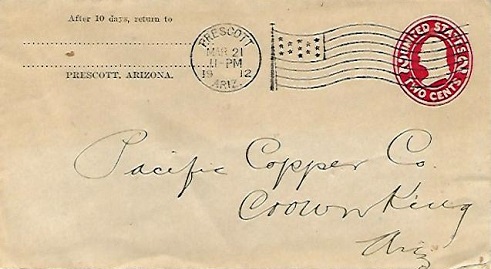 After 10 days, return to
PRESCOTT, ARIZONA.
PRESCOTT
MAR 21
11-PM
19 12
ARIZ.
UNITED STATES
2 TWO CENTS 2
Pacific Copper Co.
Crown King
Ariz